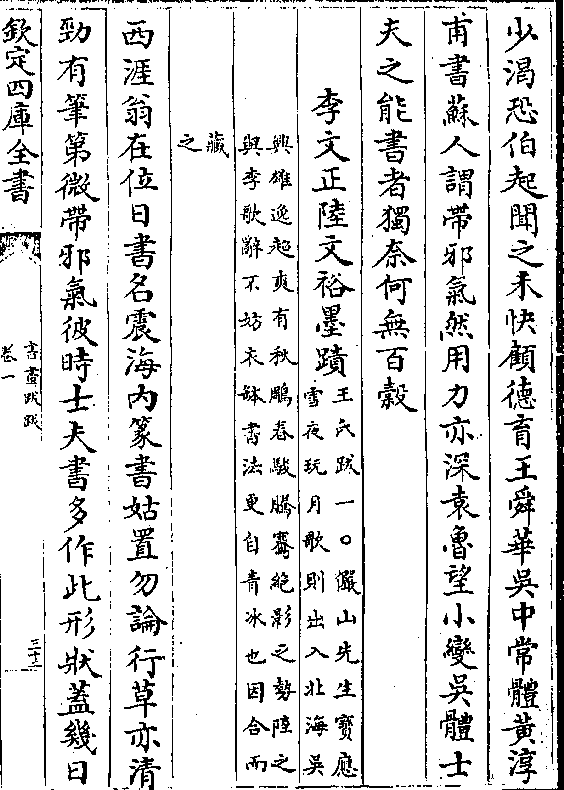 少渴恐伯起聞之未快顧德育王舜華吳中常體黃淳
甫書蘇人謂帶邪氣然用力亦深袁魯望小變吳體士
夫之能書者獨奈何無百穀
李文正陸文裕墨蹟
王氏跋一○儼山先生寶應
雪夜玩月歌則出入北海吳
興雄逸超爽有秋鵰春駿騰騫絕影之勢陸之
與李歌辭不妨衣缽書法更自青冰也因合而
藏
之
西涯翁在位日書名震海内篆書姑置勿論行草亦清
勁有筆第微帶邪氣彼時士夫書多作此形狀蓋幾日
欽定四庫全書
書畫跋跋
卷一
三十三